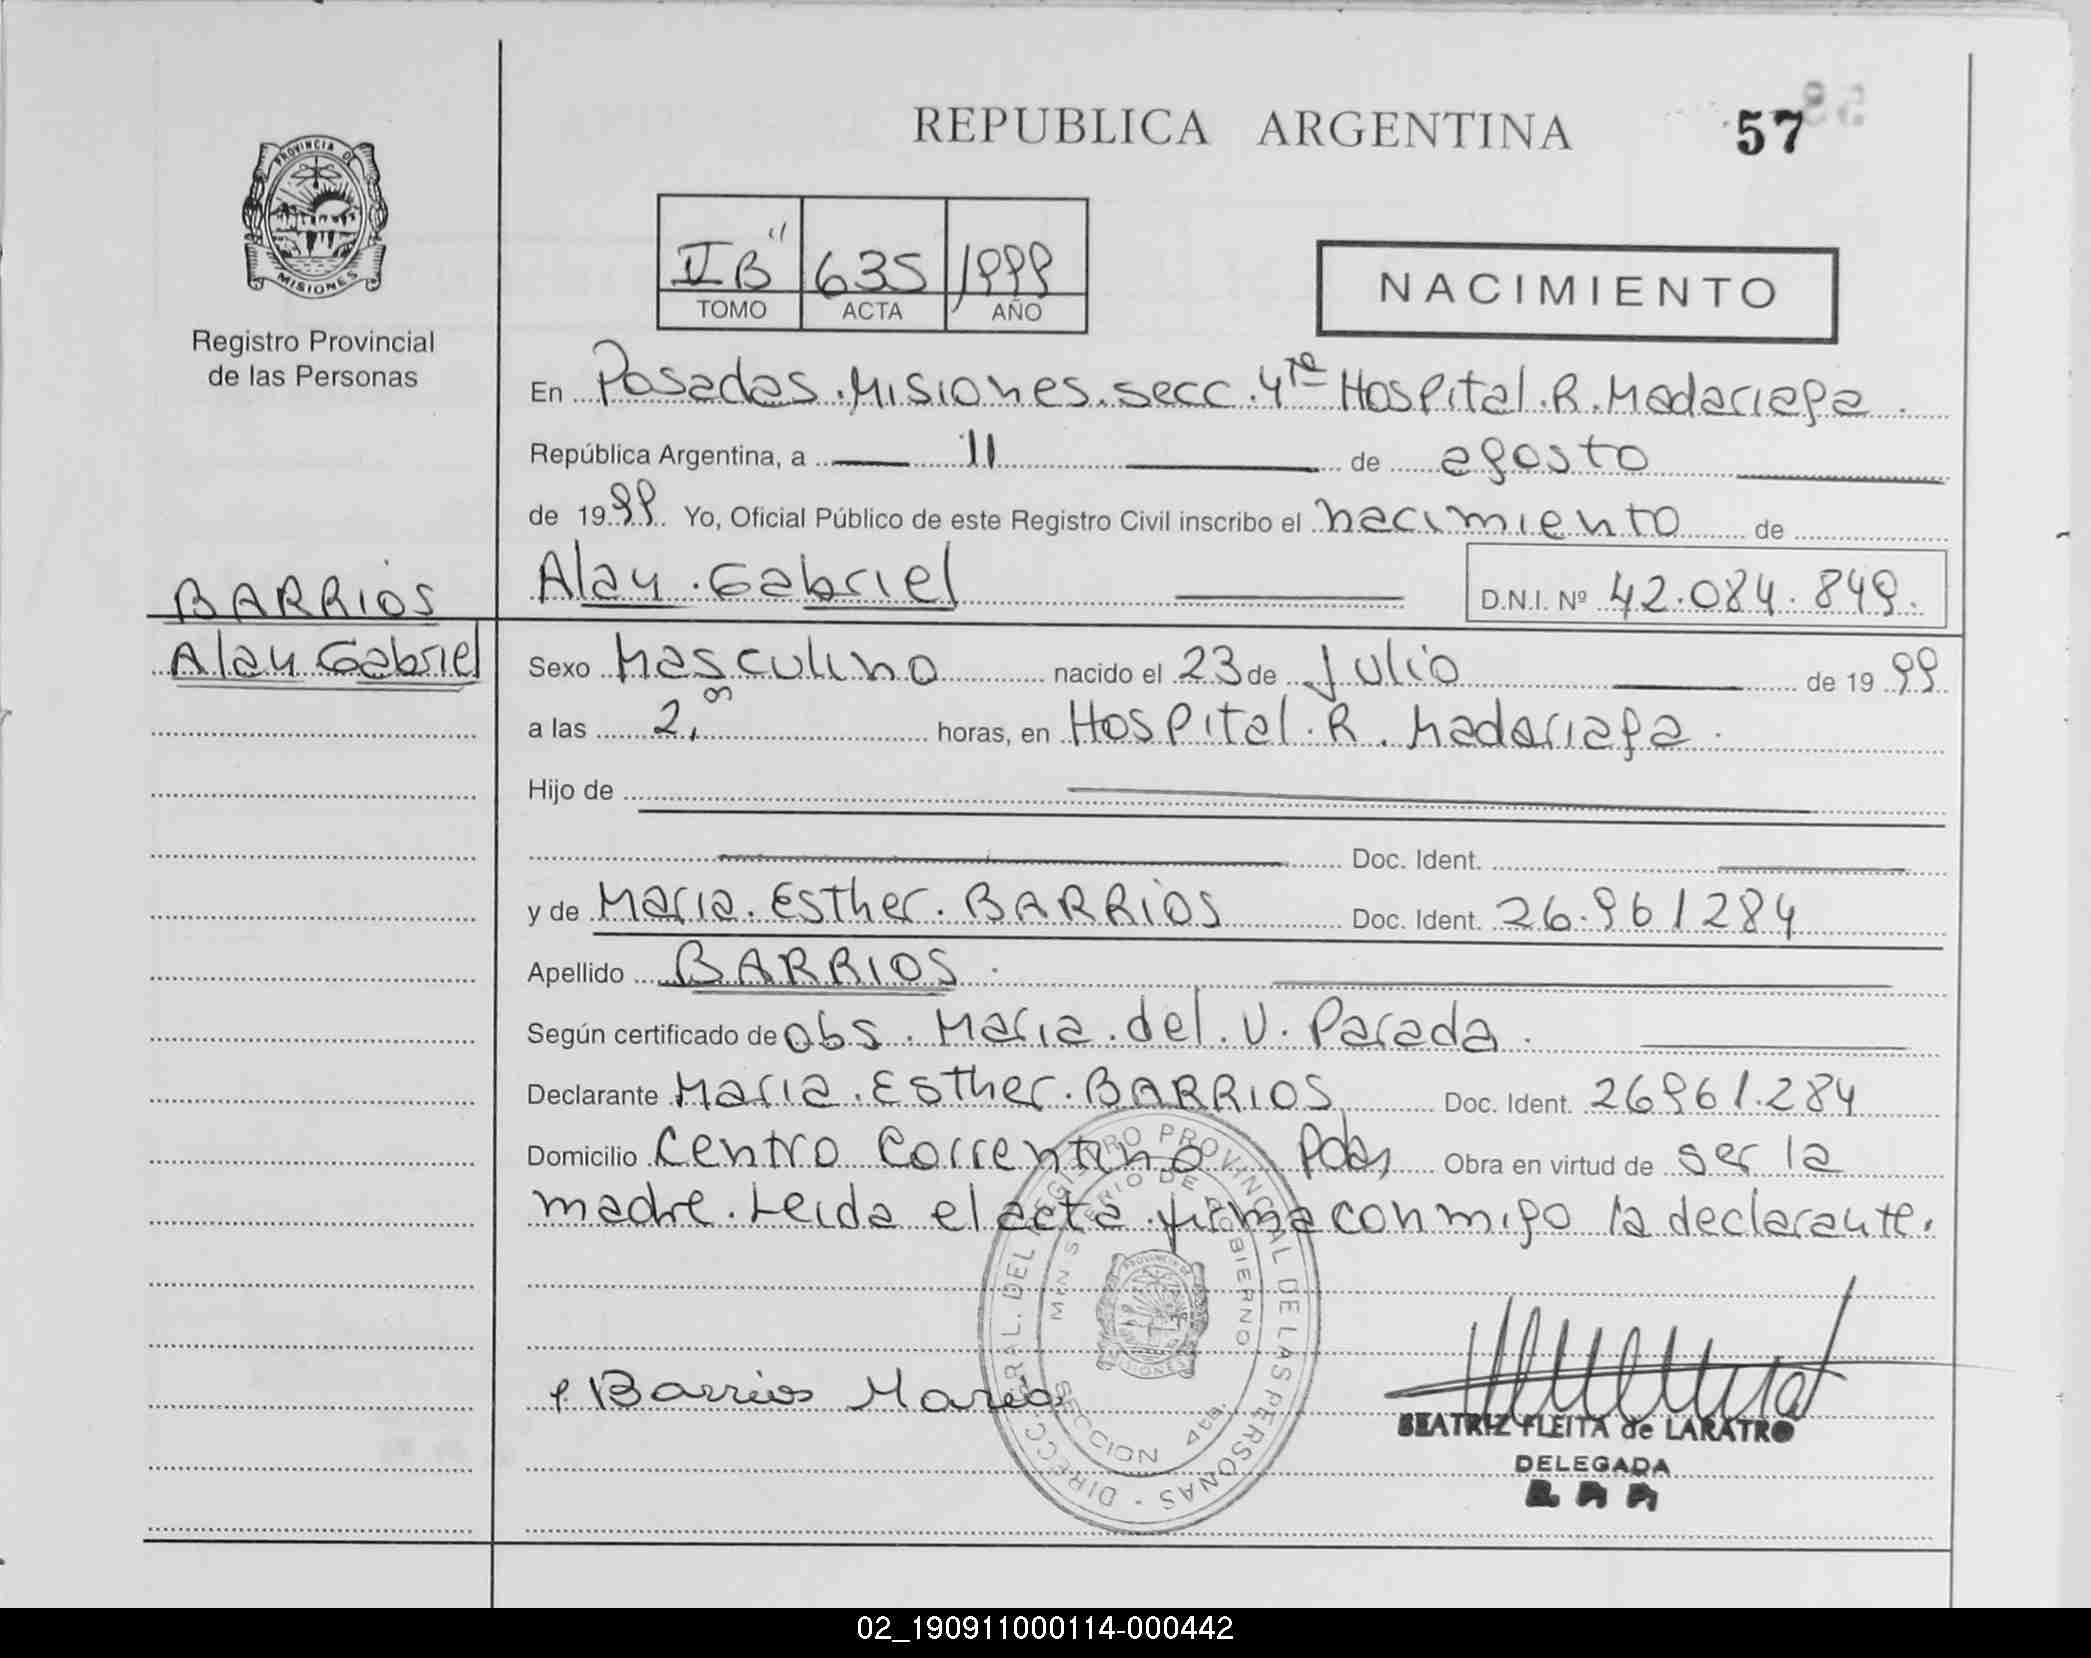 REPUBLICA ARGENTINA
57
PROVINCIA DE
MISIONES
Registro Provincial
de las Personas
II B" 635 1999
TOMO ACTA AÑO
NACIMIENTO
En Posadas. Misiones. secc. 4ta Hospital. R. Madariaga.
República Argentina, a 11 de agosto
de 1999 Yo, Oficial Público de este Registro Civil inscribo el nacimiento de
BARRIOS
Alan Gabriel
Alan. Gabriel D.N.I. Nº 42.084.849.
Sexo Masculino nacido el 23 de Julio de 1999
a las 2,00 horas, en Hospital. R. Madariaga.
Hijo de
Doc. Ident.
y de Maria. Esther. BARRIOS Doc. Ident. 26.961284
Apellido BARRIOS.
Según certificado de obs. Maria. del. V. Parada.
Declarante Maria. Esther. BARRIOS Doc. Ident. 26961.284
Domicilio Centro Correntino Pdas Obra en virtud de ser la
madre. Leida el acta. firma conmigo la declarante.
DIRECC. GRAL. DEL REGISTRO PROVINCIAL DE LAS PERSONAS
MINISTERIO DE GOBIERNO
SECCION 4ta.
Barrios Maria
BEATRIZ FLEITA de LARATRO
DELEGADA
02_190911000114-000442